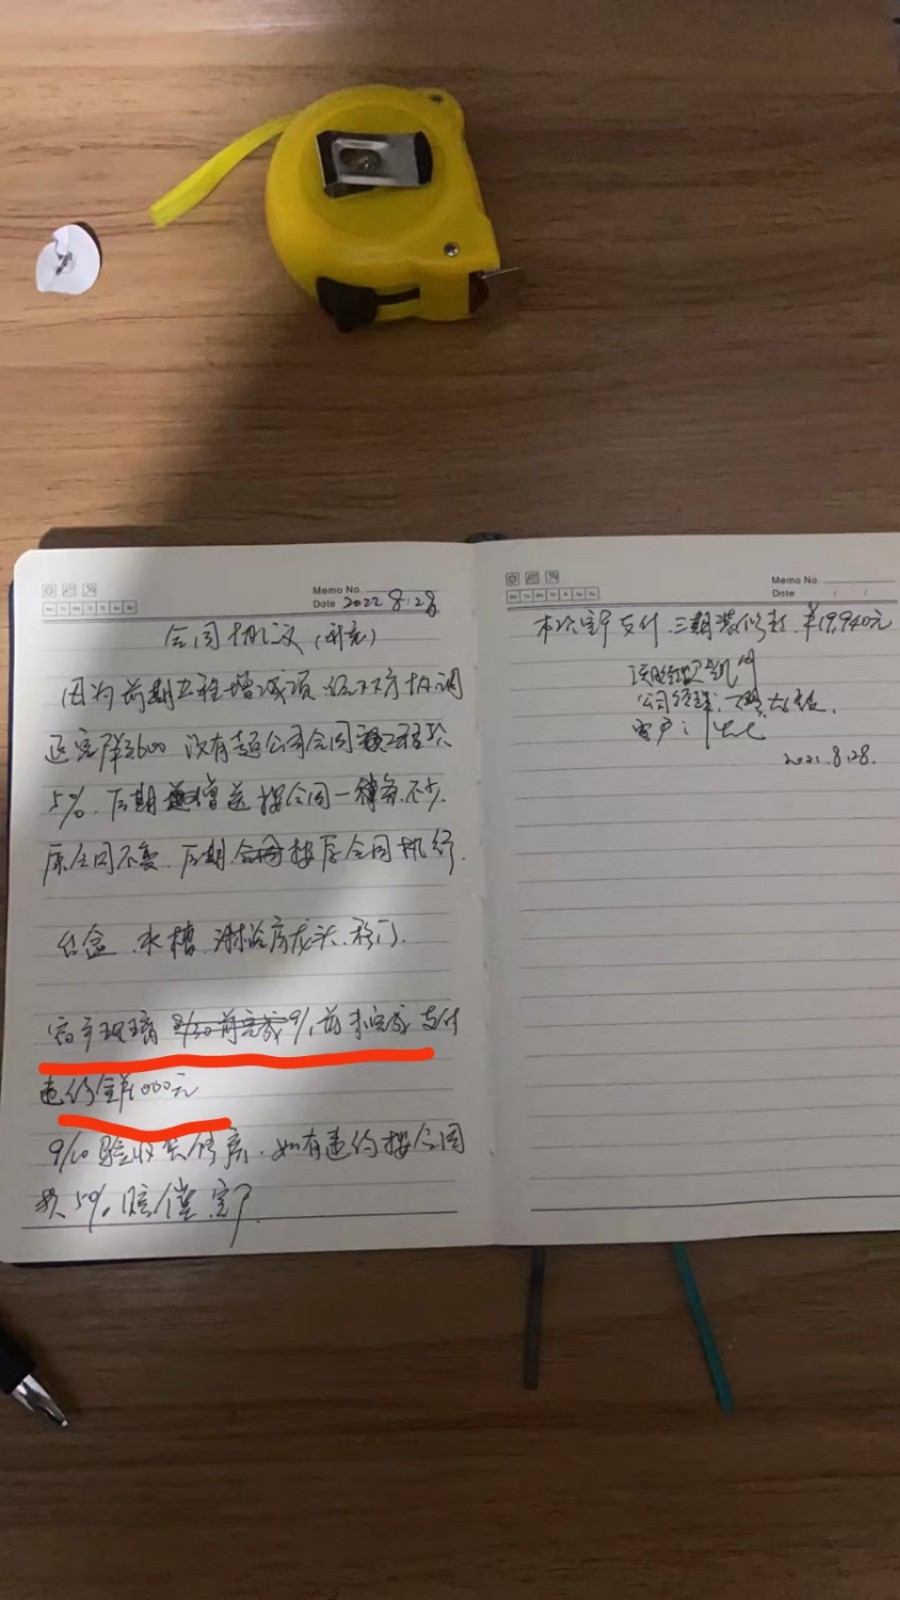 Memo No.
Date 2022 8.28
合同协议（补充）
因为前期工程增减项.经双方协调
退客户¥3600 没有超公司合同
5%.后期增送按合同一条不少.
原合同不变.后期按原合同执行.
台盆.水槽.淋浴房龙头.移门.
窗户玻璃 8/30前完成 9/1前未完成 支付
违约金¥1000元
9/10验收交付房.如有违约按合同
款5%赔偿客户
Memo No.
Date / /
本次客户支付.三期装修款.¥19,940元
公司经理:
客户:
2022.8.28.